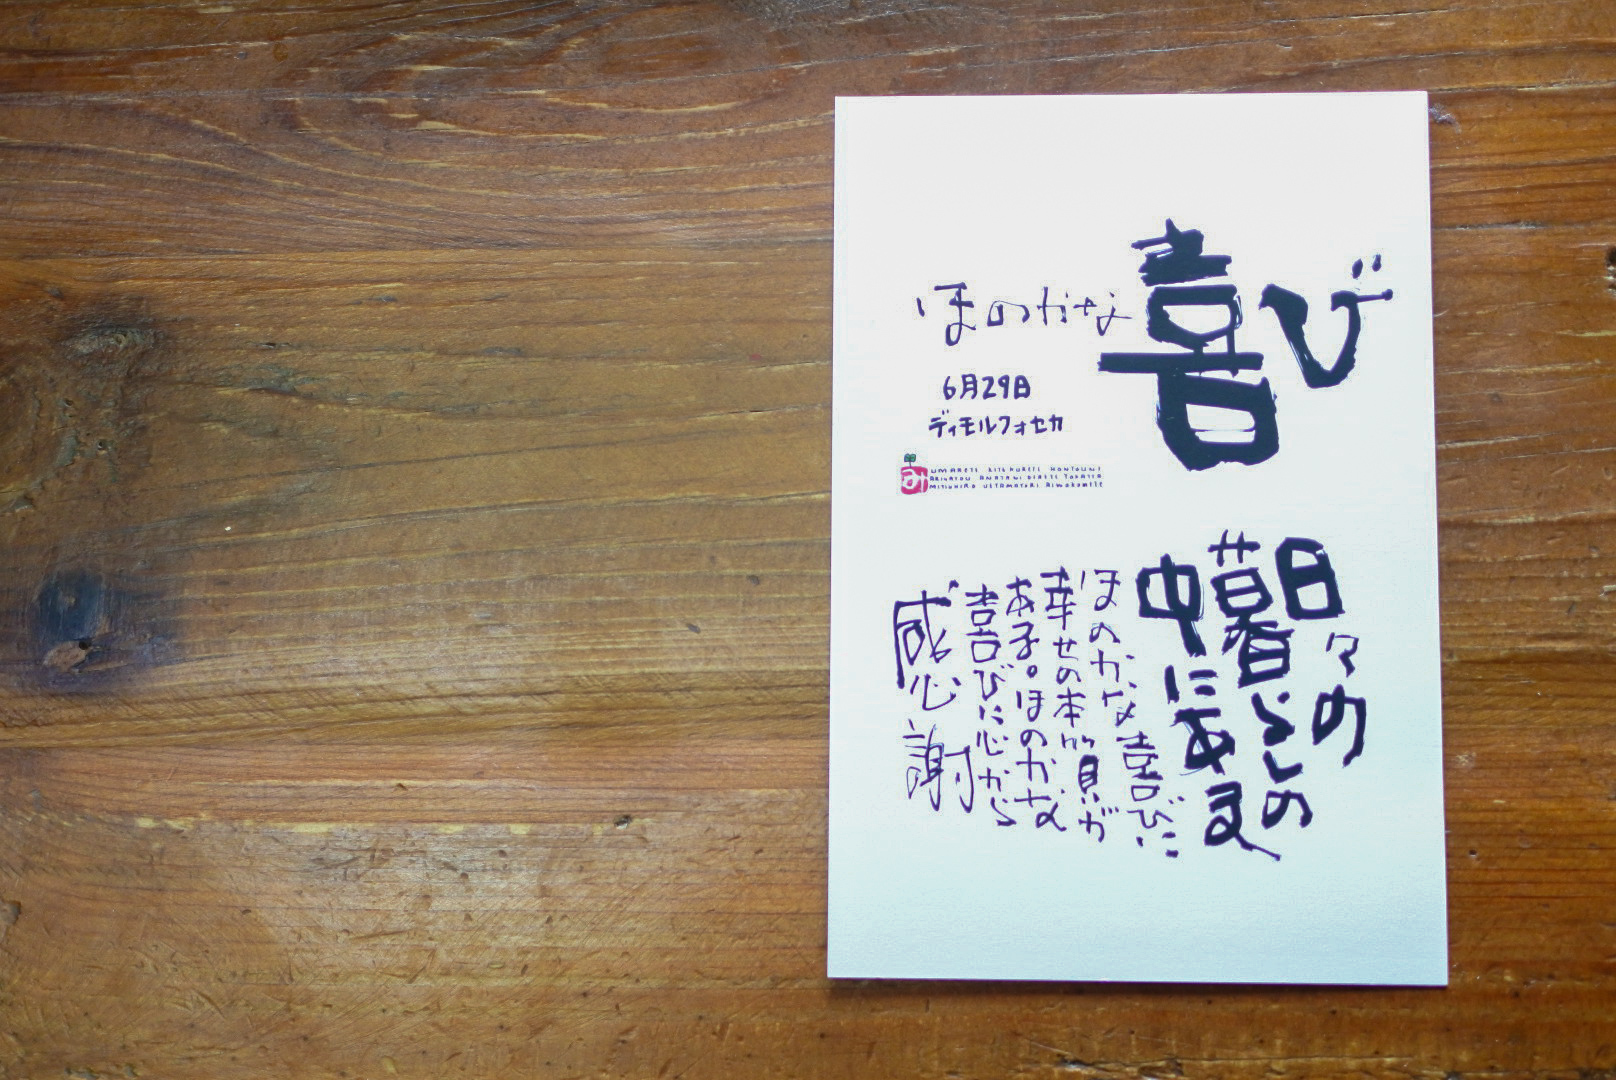 ほのかな喜び
6月29日
ディモルフォセカ
み
UMARETE KITE KURETE HONTOUNI
ARIGATOU ANATANI DEAETE YOKATTA
MITSUHIRO UETAMATORI
日々の
暮らしの
中にある
ほのかな喜びに
幸せの本質が
ある。ほのかな
喜びに心から
感謝